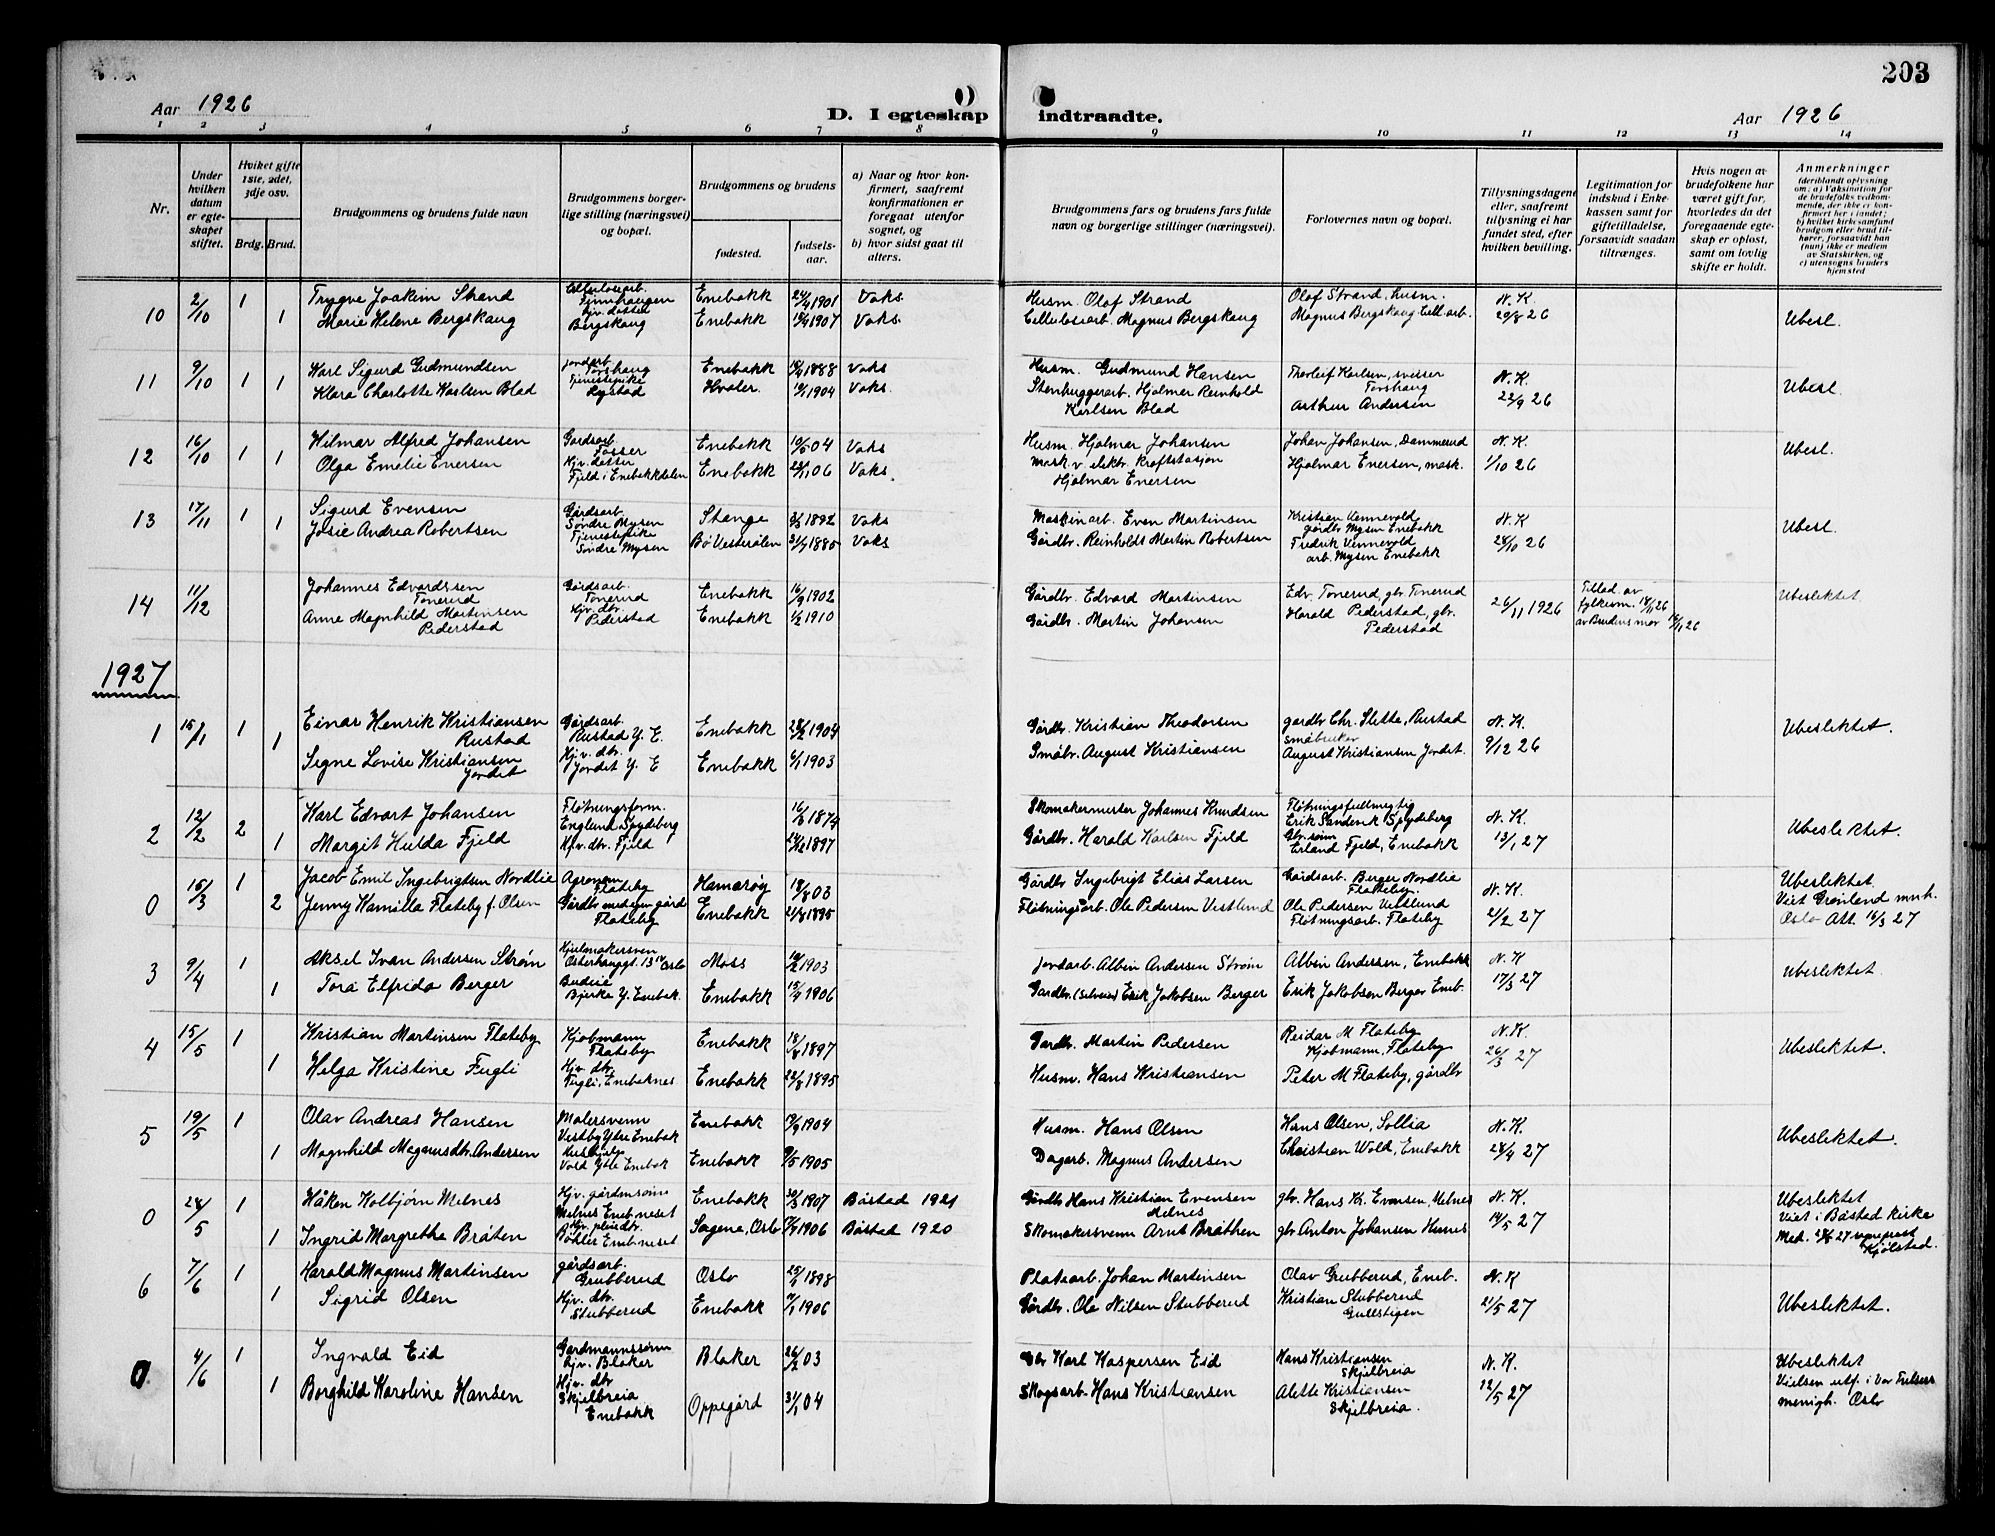 203
Aar 1926
D. I egteskap indtraadte.
Aar 1926
1 2 3 4 5 6 7 8 9 10 11 12 13 14
Nr.
Under hvilken datum er egteskapet stiftet.
Hvilket gifte 1ste, 2det, 3dje osv.
Brdg. Brud.
Brudgommens og brudens fulde navn
Brudgommens borgerlige stilling (næringsvei) og bopæl.
Brudgommens og brudens
fødested. fødselsaar.
a) Naar og hvor konfirmert, saafremt konfirmationen er foregaat utenfor sognet, og
b) hvor sidst gaat til alters.
Brudgommens fars og brudens fars fulde navn og borgerlige stillinger (næringsvei).
Forlovernes navn og bopæl.
Tillysningsdagene eller, saafremt tillysning ei har fundet sted, efter hvilken bevilling.
Legitimation for indskud i Enkekassen samt for giftetilladelse, forsaavidt saadan tiltrænges.
Hvis nogen av brudefolkene har været gift før, hvorledes da det foregaaende egteskap er opløst, samt om lovlig skifte er holdt.
Anmerkninger
(deriblandt oplysning om: a) Vaksination for de brudefolks vedkommende, der ikke er konfirmert her i landet; b) hvilket kirkesamfund brudgom eller brud tilhører, forsaavidt han (hun) ikke er medlem av Statskirken, og c) utensogns bruders hjemsted
10 2/10 1 Trygve Joakim Strand Cellulosearb. Finnhaugen Enebakk 24/4 1901 Vaks. Husm. Olaf Strand Olaf Strand, husm. N. K.
1 Marie Helene Bergskaug Hjv. datter Bergskaug Enebakk 1907 Vaks. Cellulosearb. Magnus Bergskaug Magnus Bergskaug Cell. arb. 29/8 26 Ubesl.
11 9/10 1 1 Karl Sigurd Gudmundsen Jordarb. Torshaug Enebakk 1888 Vaks Husm. Gudmund Hansen Thorleif Karlsen, svisser Torshaug N. K.
Klara Charlotte Karlsen Blad Tjenestepike Hvaler. 1904 Vaks. Stenhuggerarb. Hjalmer Reinhold Karlsen Blad Arthur Andersen 22/9 26 Ubesl.
12 16/10 1 1 Hilmar Alfred Johansen Gardsarb. Fosser Enebakk 04 Vaks Husm. Hjalmar Johansen Johan Johansen, Dammerud N. K.
Olga Emelie Enersen Hjv. datter Fjeld i Enebakkdalen Enebakk 06 Vaks. Mask. v. elektr. kraftstasjon Hjalmar Enersen Hjalmar Enersen, mask. 1/10 26 Ubesl.
13 17/11 1 1 Sigurd Evensen Gårdsarb. Søndre Mysen Stange 1892 Vaks Maskinarb. Even Martinsen Kristian Vennevold gårdbr Mysen Enebakk N. K
Josie Andrea Robertsen Tjenestepike Søndre Mysen Bø Vesterålen 1885 Vaks Gårdbr. Reinholdt Martin Robertsen Fredrik Vennevold arb. Mysen Enebakk 24/10 26 Ubesl.
14 11/12 Johannes Edvardssen Tonerud Gårdsarb. Tonerud Enebakk 16/9 1902 Gårdbr. Edvard Martinsen Edv. Tonerud, gbr. Tonerud 26/11 1926 Tillad. av fylkesm. 18/11 26 Ubeslektet
Anne Magnhild Martinsen Pederstad Hjv. dtr. Pederstad Enebakk 1/2 1910 Gårdbr. Martin Johansen Harald Pederstad, gbr. Pederstad av Brudens mor 16/11 26
1927
1 15/1 1 1 Einar Henrik Kristiansen Rustad Gårdsarb. Rustad Y. E. Enebakk 28/2 1904 Gårdbr. Kristian Theodorsen gardbr Chr. Slette, Rustad N. K.
Signe Lovise Kristiansen Jordet Hjv. dtr. Jordet Y. E Enebakk 6/1 1903 Småbr. August Kristiansen småbruker August Kristiansen Jordet. 9/12 26 Ubeslektet.
2 12/2 2 Karl Edvart Johansen Fløtningsform. Englund Spydeberg 1874 Skomakermester Johannes Knudsen Fløtningsfullmegtig Erik Sandvik Spydeberg N. K.
1 Margit Hulda Fjeld Hjv. dtr. Fjeld 24/12 1897 Gårdbr. Harald Karlsen Fjeld Gbr. sønn Erland Fjeld, Enebakk 13/1 27 Ubeslektet.
0 15/3 1 Jacob Emil Ingebrigtsen Nordlie Agronom Flateby Hamarøy 18/8 03 Gårdbr Ingebrigt Elias Larsen Gårdsarb. Berger Nordlie Flateby. N. K. Ubeslektet.
2 Jenny Kamilla Flateby f. Olsen Gårdbr med egen gård Flateby Enebakk 1895 Fløtningsarb. Ole Pedersen Vestlund Ole Pedersen Vestlund Fløtningsarb. Flateby 21/2 27 Viet Grønland mnh. Oslo Att. 16/3 27
3 9/4 1 Aksel Ivan Andersen Strøm Hjulmakersven Osterhausgt. 13 IV Oslo Moss 1903 Jordarb. Albin Andersen Strøm Albin Anderssen, Enebakk N. K
1 Tora Elfrida Berger Budeie Bjerke Y. Enebak. Enebakk 15/9 1906 Gardbr. Erik Jakobsen Berger Erik Jakobsen Berger Eneb. 17/3 27 Ubeslektet.
4 15/5 1 Kristian Martinsen Flateby Kjøbmann Flateby Enebakk 1897 Gardbr. Martin Pedersen Reidar M Flateby Kjøbmann, Flateby N. K
1 Helga Kristine Fugli Hjv dtr. Fugli, Enebaknes Enebakk 22/8 1895 Husm. Hans Kristiansen Peter M Flateby, gårdbr 26/3 27 Ubeslektet.
5 19/5 1 Olav Andreas Hansen Malersvenn Vestby Ytre Enebak Enebakk 1904 Husm. Hans Olsen Hans Olsen, Sollia N. K.
1 Magnhild Magnusdtr. Andersen Vold Ytre Enebak Enebakk 1905 Dagarb. Magnus Andersen Christian Wold, Enebakk 24/4 27 Ubeslektet.
0 24/5 1 Håken Kolbjørn Melnes Hjv. gårdmsønn Melnes Eneb.neset Enebakk 30/3 1907 Båstad 1921 Gårdbr Hans Kristian Evensen Melnes gbr. Hans Kr. Evensen, Melnes N. K. Ubeslektet
1 Ingrid Margrethe Bråten Bøhler Eneb.neset Sagene, Oslo 1906 Båstad 1920 Skomakersvenn Arnt Bråthen gbr Anton Johansen Husnes 14/5 27 Viet i Båstad kirke Med. 27 sogneprest Kjølstad.
6 7/6 1 Harald Magnus Martinsen gårdsarb. Grubberud Oslo 1898 Platearb. Johan Martinsen Olav Grubberud, Eneb. N. K
1 Sigrid Olsen Hjv. dtr. Stubberud Enebakk 1906 Gårdbr. Ole Nilsen Stubberud Kristian Stubberud Gullstigen 21/5 27 Ubeslektet.
0 4/6 1 Ingvald Eid Gardmannssønn hjv. Blaker Blaker 26/2 03 Gbr Karl Kaspersen Eid Hans Kristiansen Skjelbreia N. K. Ubeslektet
1 Borghild Karoline Hansen Hjv. dtr Skjelbreia Enebakk Oppegård 31/1 04 Skogsarb. Hans Kristiansen Alette Kristiansen Skjelbreia. 12/5 27 Vielsen utf. i Vor Frelsers menigh. Oslo